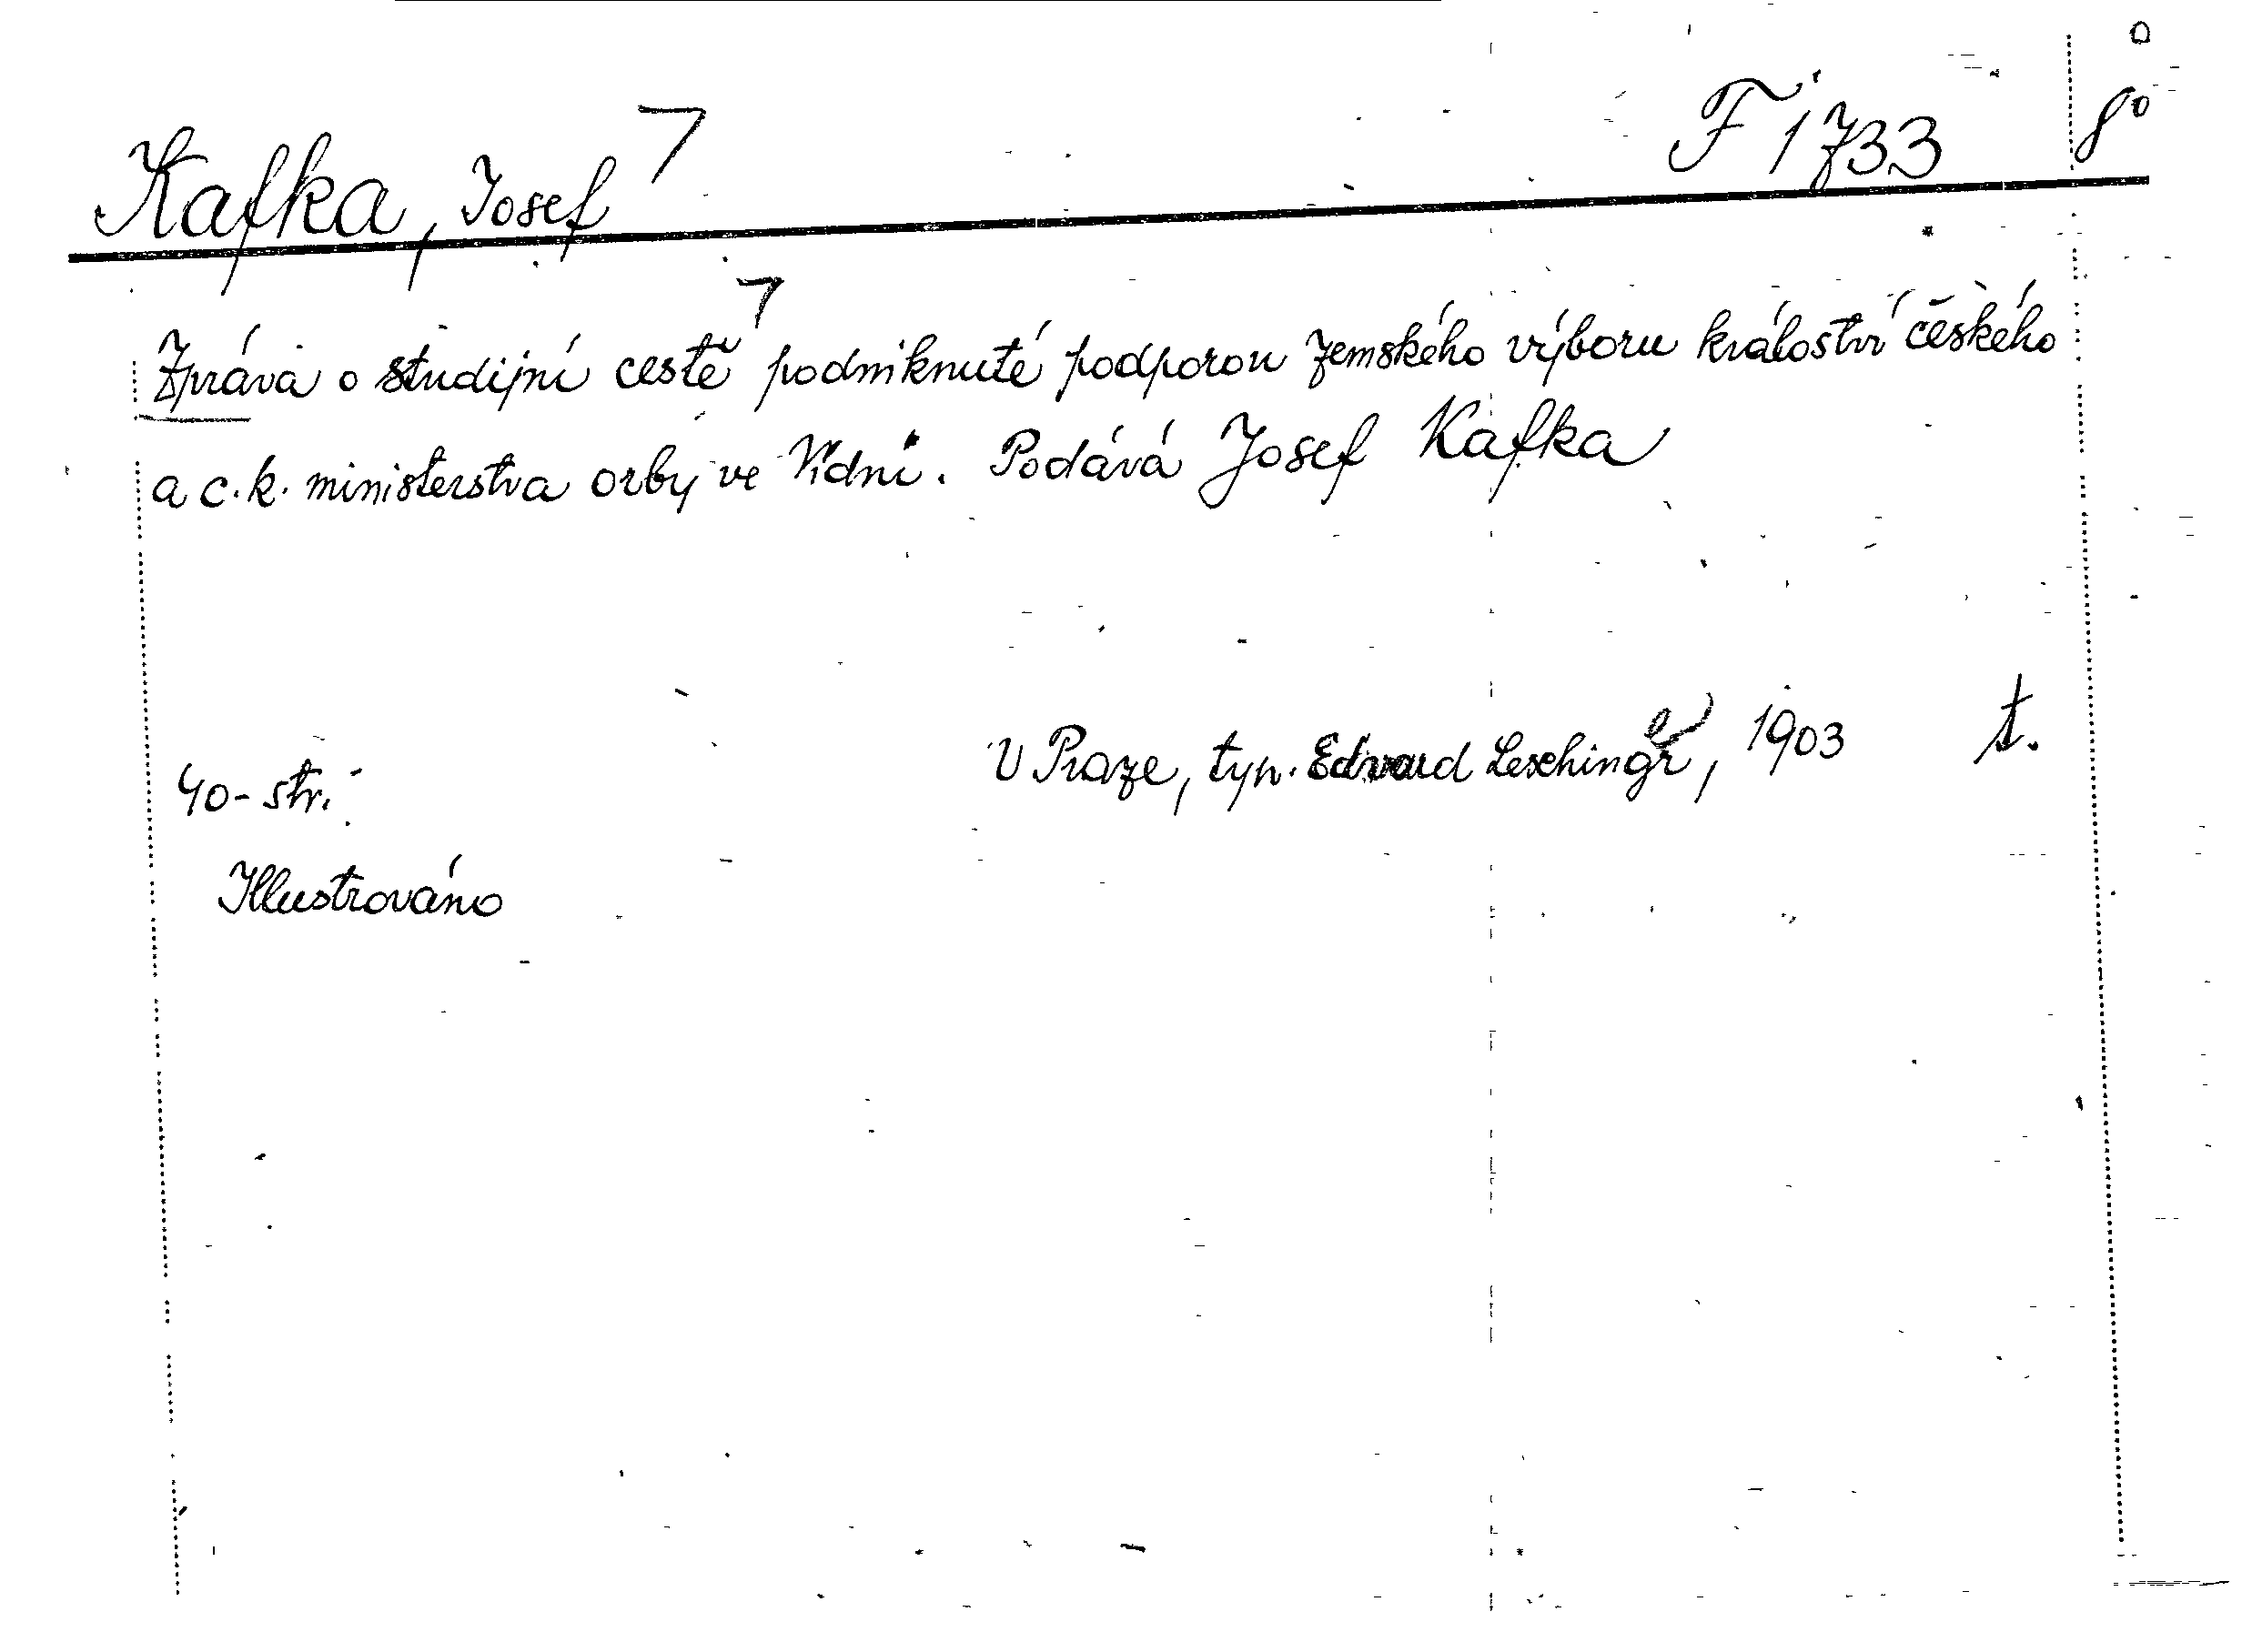 Kafka, Josef ㄱ F 1733 8°
Zpráva o studijní cestě ㄱ podniknuté podporou zemského výboru králoství českého
a c. k. ministerstva orby ve Vídni. Podává Josef Kafka
V Praze, typ. Edvard Leschinger, 1903 t.
40 - str.
Illustrováno